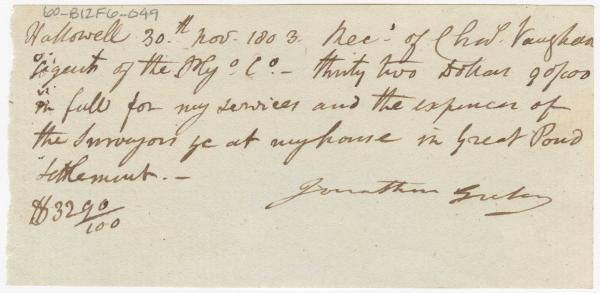 60-B12F6-049
Hallowell 30.th Nov. 1803. Rec.d of Chas. Vaughan
Agent of the Ply.o Co. - thirty two Dollars 90/100
in full for my services and the expences of
the Surveyors &c at my house in Great Pond
settlement. -
Jonathan
$32 90/100